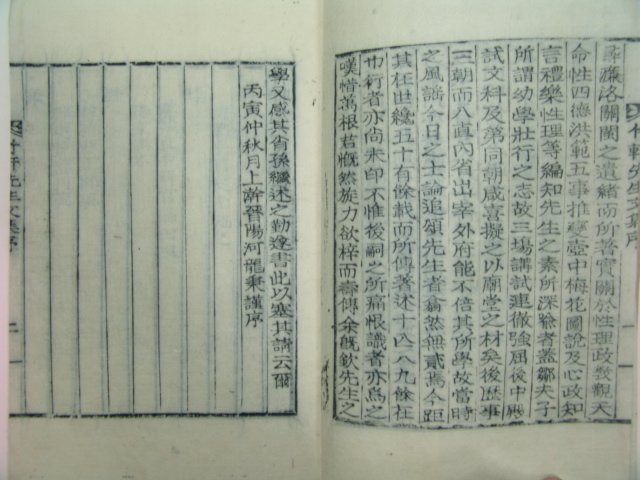 尋濂洛關閩之遺緖而所著實關於性理政敎觀天
命性四德洪範五事推變壺中梅花圖說及心政知
言禮樂性理等編知先生之素所深飱者蓋鄒夫子
所謂幼學壯行之志故三場講試連徹強屈後中殿
試文科及第同朝咸喜擬之以廟堂之材矣後歷事
三朝而八直內省出宰外府能不倍其所學故當時
之風謠今日之士論追頌先生者翕然無貳焉今距
其在世纔五十有餘載而所傳著述十亾八九餘在
也行者亦尚未印不惟後嗣之所痛恨識者亦爲之
嘆惜萬根若慨然旋力欲梓而壽傳余旣欽先生之
學又感其肖孫繼述之勤遂書此以塞其請云爾
丙寅仲秋月上澣晉陽河龍秉謹序